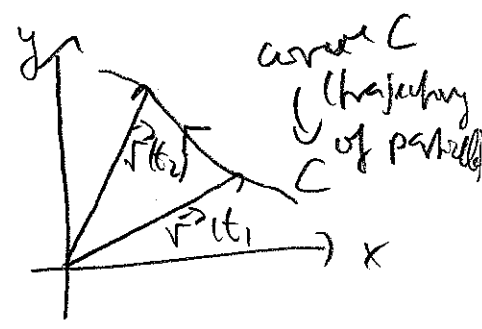 y
curve C
(trajectory
of particle)
r⃗(t₂)
C
r⃗(t₁
x